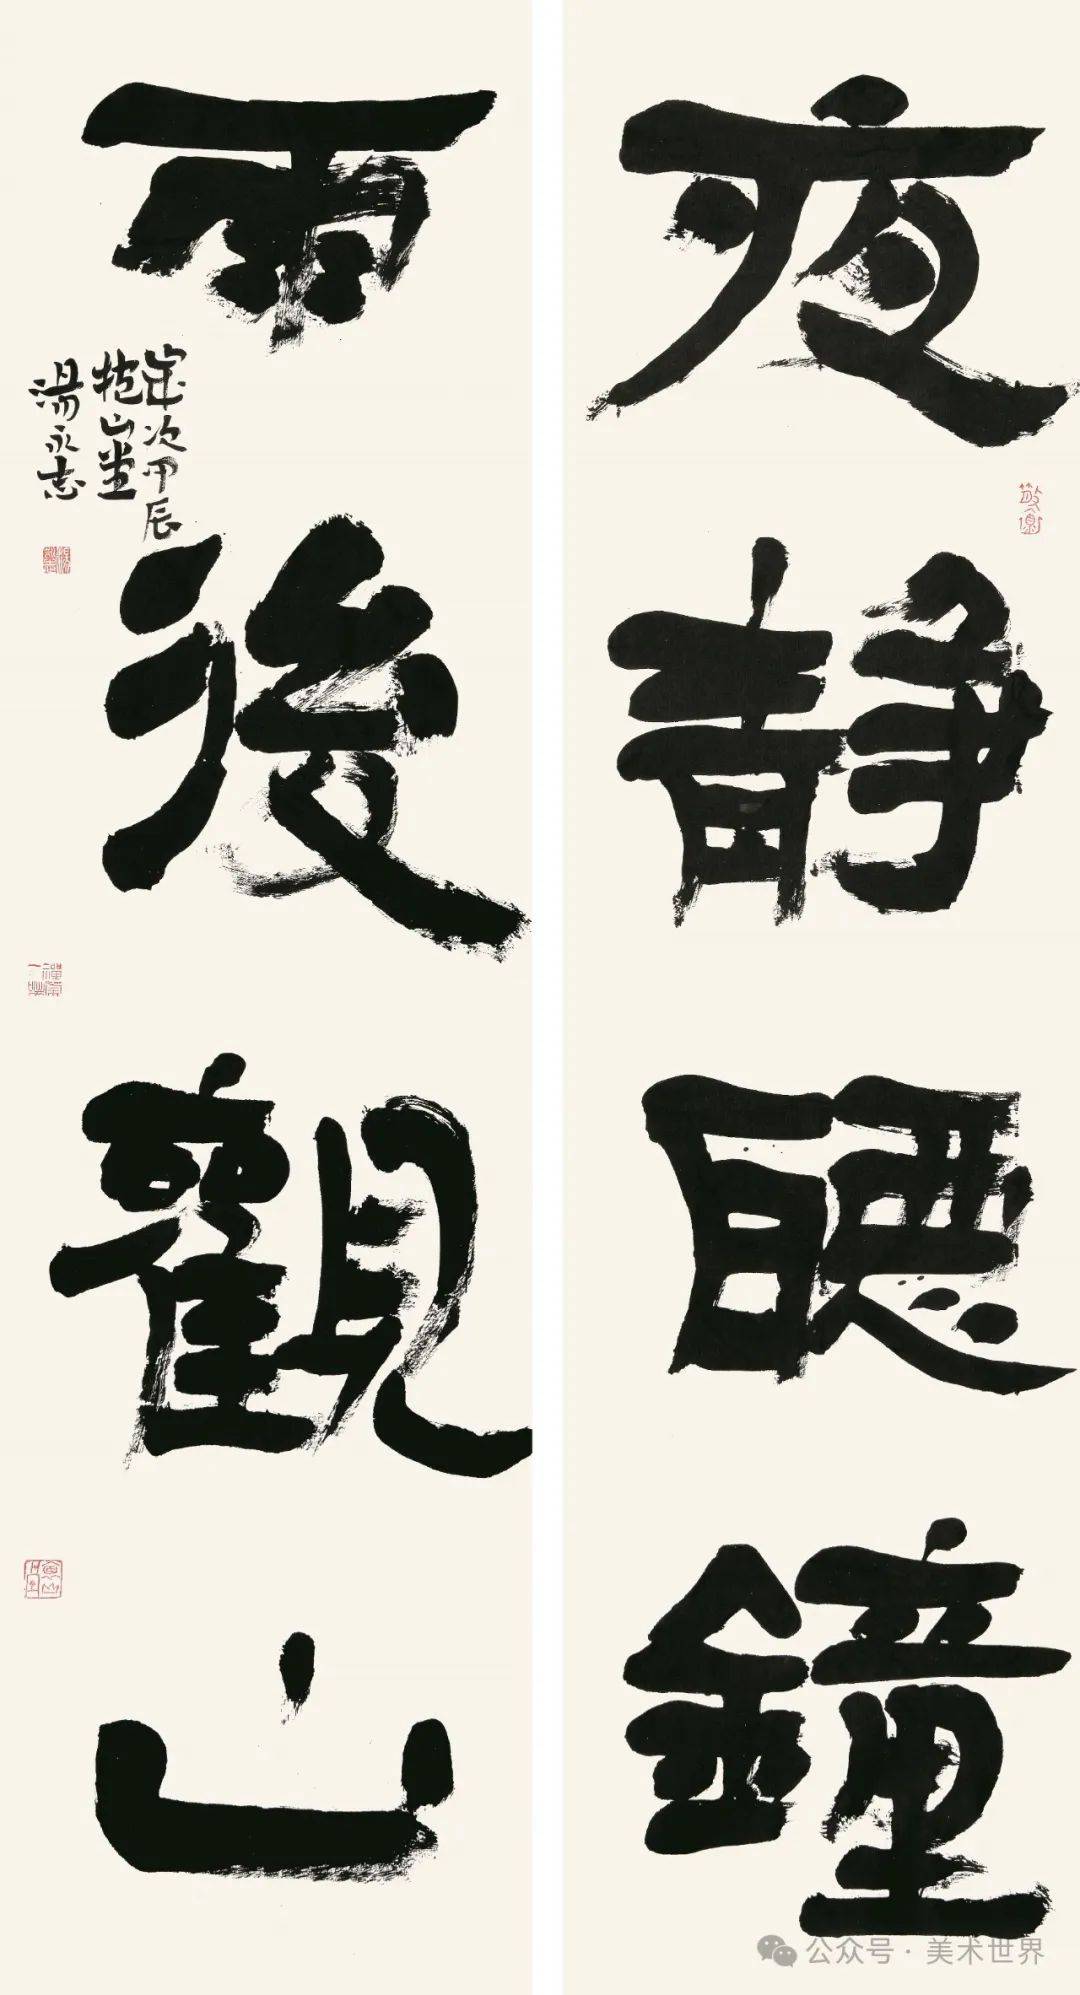 夜靜聽鐘
雨後觀山
歲次甲辰
抱山堂
湯永志
公众号 · 美术世界